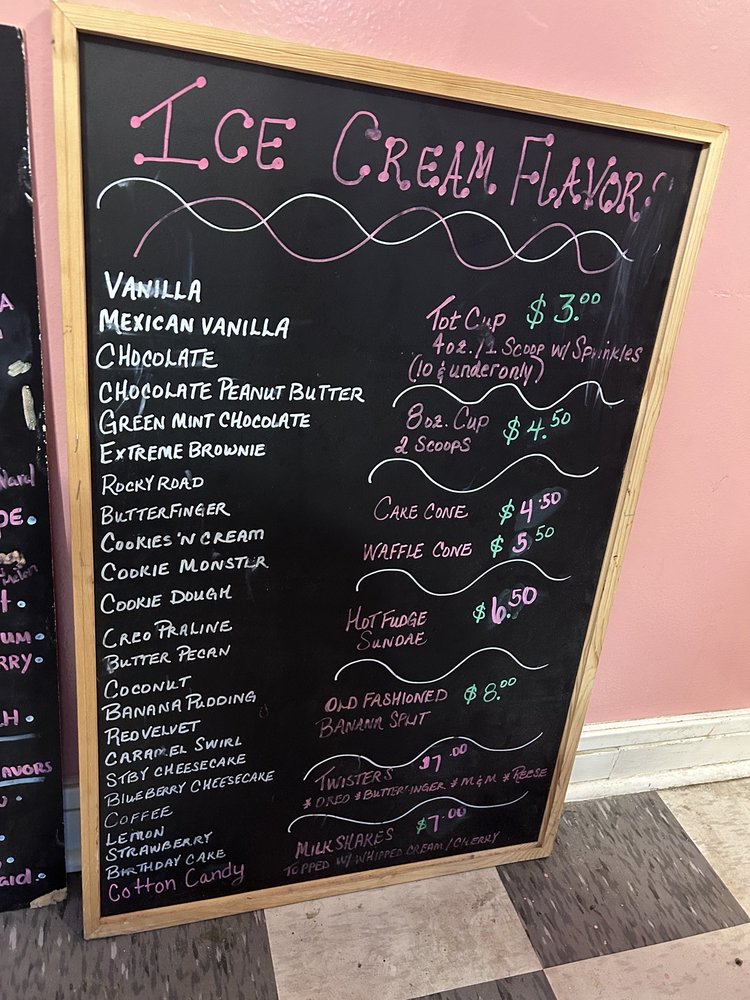 ICE CREAM FLAVORS
VANILLA
MEXICAN VANILLA
CHOCOLATE
CHOCOLATE PEANUT BUTTER
GREEN MINT CHOCOLATE
EXTREME BROWNIE
ROCKY ROAD
BUTTERFINGER
COOKIES 'N CREAM
COOKIE MONSTER
COOKIE DOUGH
CREO PRALINE
BUTTER PECAN
COCONUT
BANANA PUDDING
RED VELVET
CARAMEL SWIRL
STBY CHEESECAKE
BLUEBERRY CHEESECAKE
COFFEE
LEMON
STRAWBERRY
BIRTHDAY CAKE
Cotton Candy
Tot Cup $3.00
4oz./1 Scoop w/ Sprinkles
(10 & under only)
8oz. Cup $4.50
2 Scoops
CAKE CONE $4.50
WAFFLE CONE $5.50
HOT FUDGE $6.50
SUNDAE
OLD FASHIONED $8.00
BANANA SPLIT
TWISTERS $7.00
* OREO * BUTTERFINGER * M&M * REESE
MILKSHAKES $7.00
TOPPED W/ WHIPPED CREAM/CHERRY
AVORS